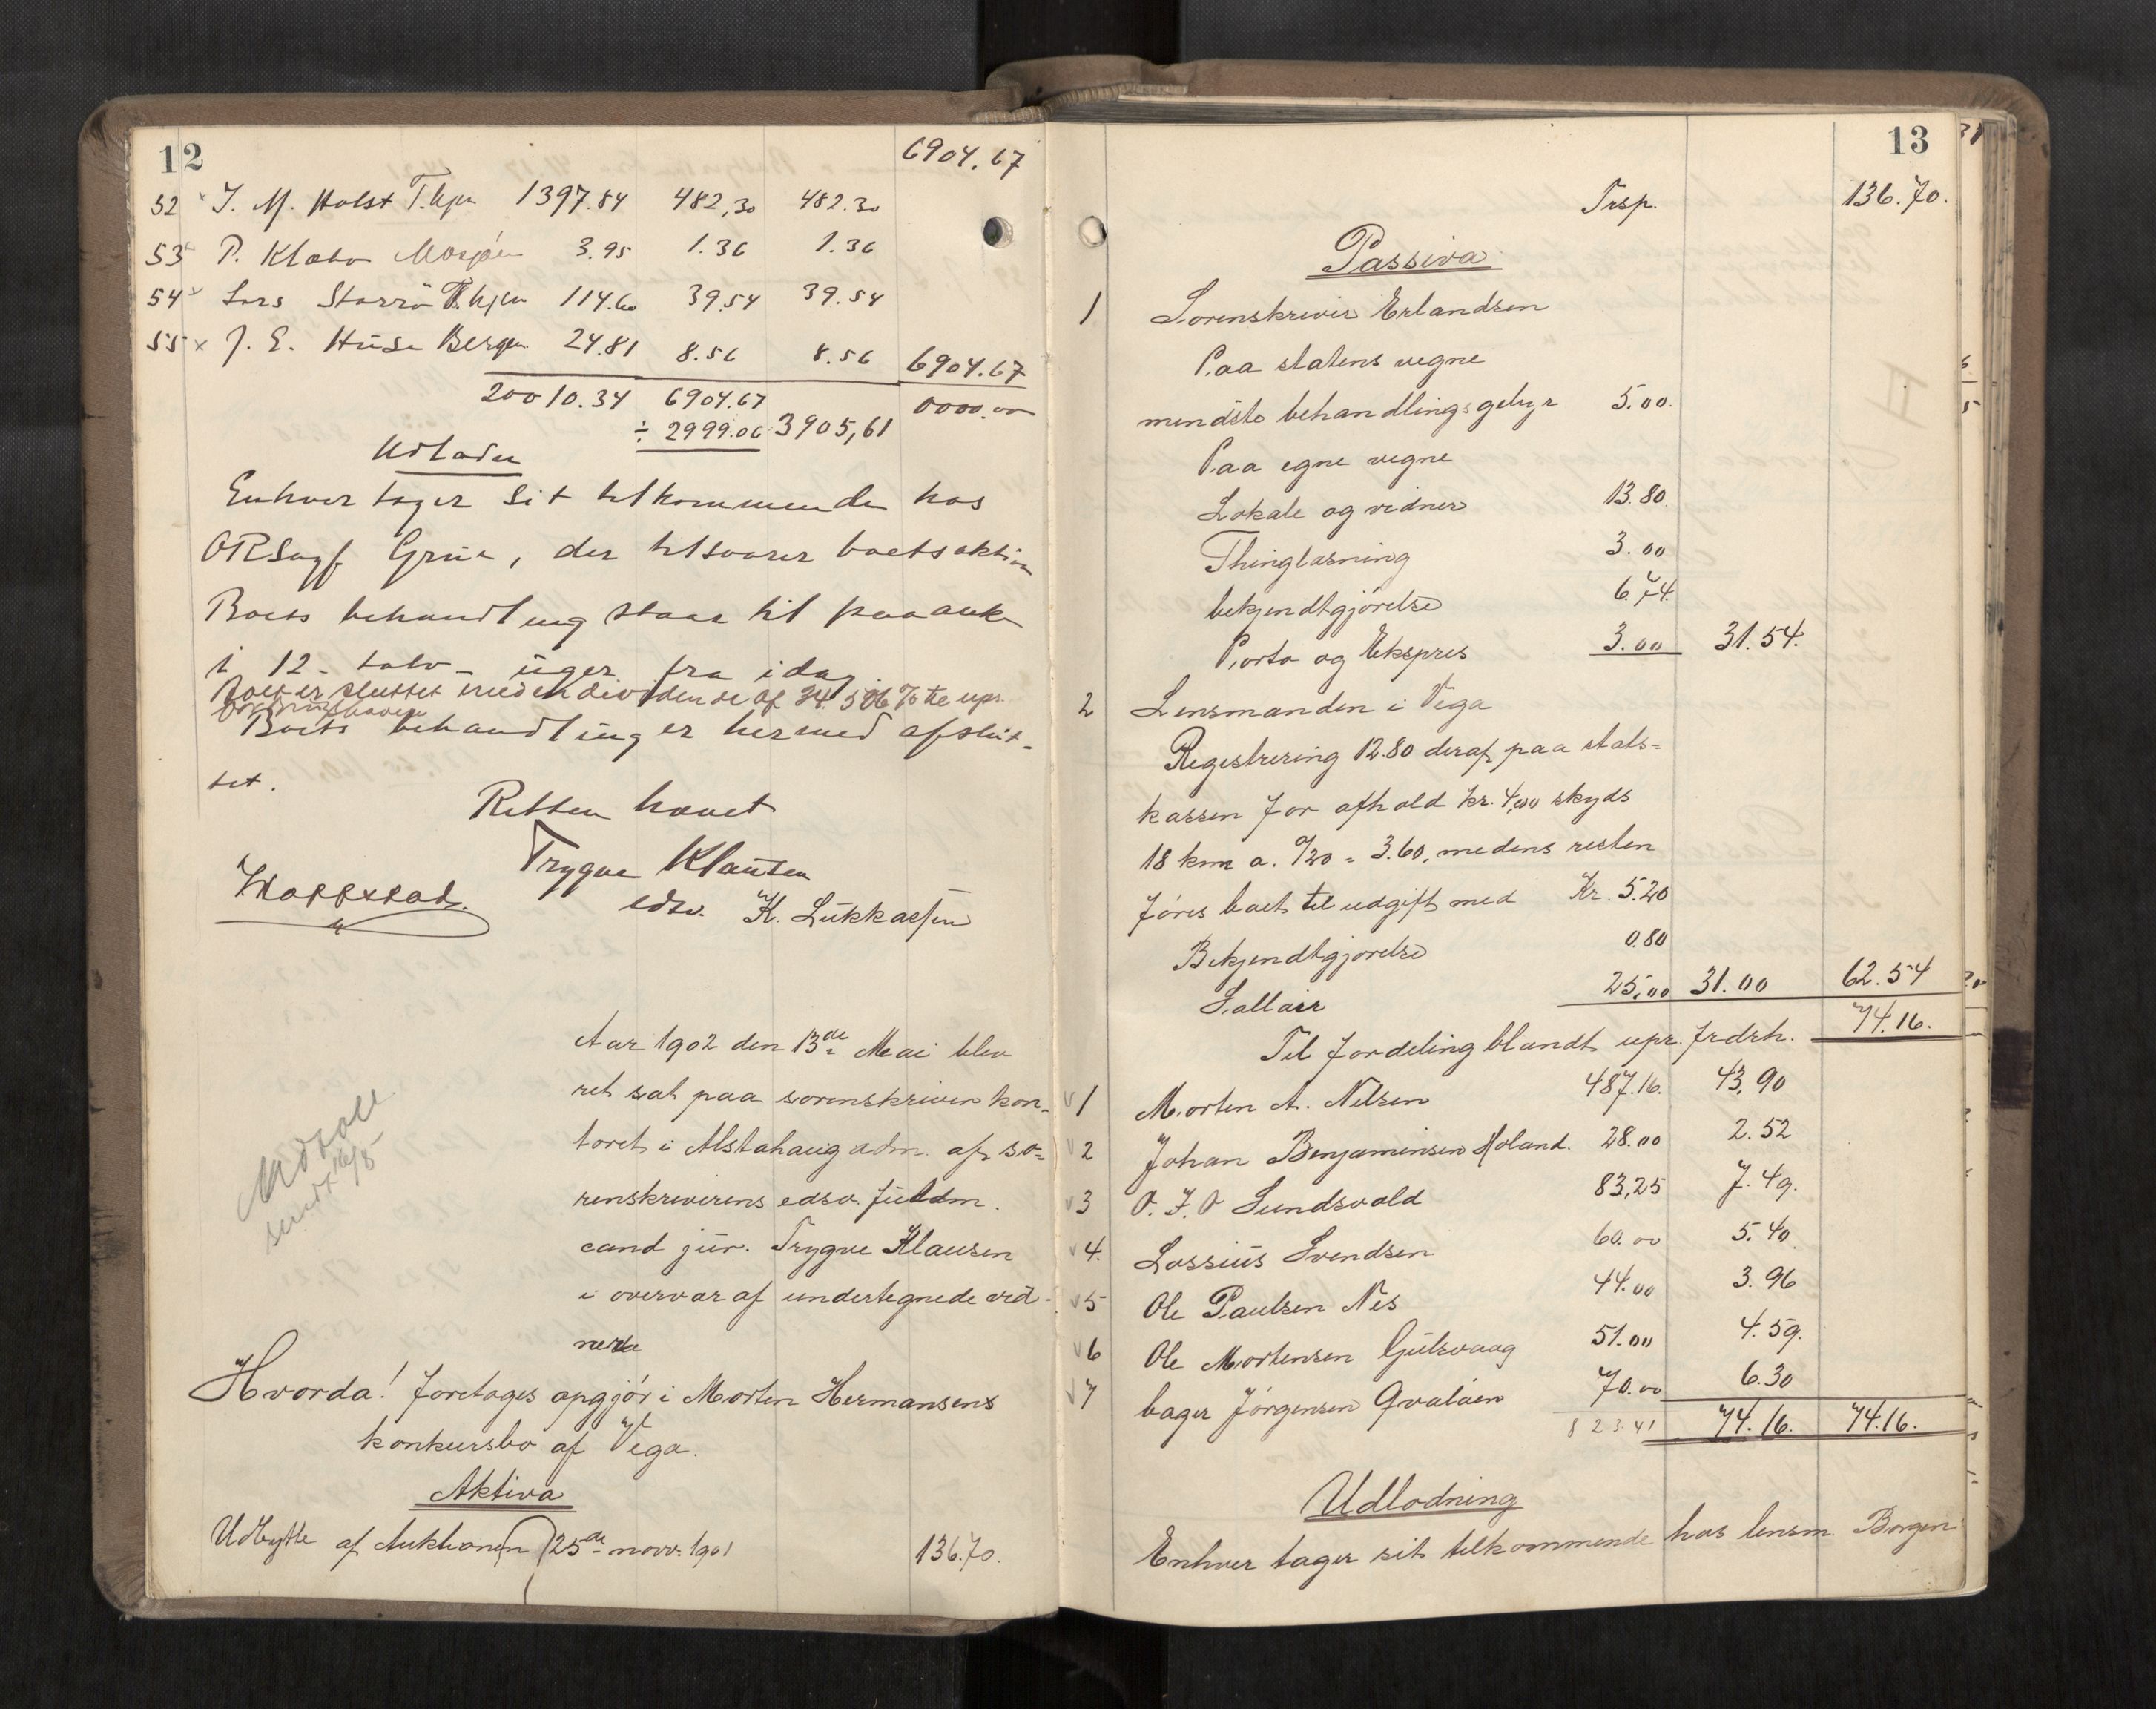 12
6904.67
52 x J. M. Holst T.hjm 1397.84 482,30 482.30
53 x P. Klæbo Mosjøen 3.95 1.36 1.36
54 x Lars Storrø T.hjem 114.60 39.54 39.54
55 x J. E. Huse Bergen 24.81 8.56 8.56 6904.67
20010.34 6904.67 0000.00
÷ 2999.06 3905,61
Udloden
Enhver tager sit tilkommende hos
ORSagf Grün, der tilsvarer boets aktiva
Boets behandling staar til paaanke
i 12 - tolv - uger fra idag
Boet er sluttet med en dividende af 34.506 % til upr.
Boets behandling er hermed afslut-
tet.
Retten hævet
Trygve Klausen
edsv. K. Lukkassen
Aar 1902 den 13de Mai blev
ret sat paa sorenskriver kon-
toret i Alstahaug adm. af so-
renskriverens edsv. fuldm.
cand jur. Trygve Klausen
i overvær af undertegnede vid-
ner
Udtall
sendt 16/5
Hvorda! foretoges opgjør i Morten Hermansens
konkursbo af Vega.
Aktiva
Udbytte af Auktionen 25de novr. 1901 136.70.
13
Trsp. 136.70.
Passiva
1 Sorenskriver Erlandsen
Paa statens vegne
mindste behandlingsgebyr 5.00.
Paa egne vegne
Lokale og vidner 13.80.
Thinglæsning 3.00
bekjendtgjørelse 6.74.
Porto og Ekspres 3.00 31.54.
2 Lensmanden i Vega
Registrering 12.80 deraf paa stats=
kassen for afhold kr. 4,00 skyds
18 km a. 0/20 = 3.60, medens resten
føres boet til udgift med Kr. 5.20
Bekjendtgjørelse 0.80
Sallair 25,00 31.00 62.54
Til fordeling blandt upr. frdrh. 74.16.
1 Morten A. Nilsen 487.16. 43,90
2 Johan Benjaminsen Holand. 28.00 2.52
3 O. J. O Sundsvold 83,25 7.49.
4. Lossius Svendsen 60.00 5.40
5 Ole Paulsen Nes 44.00 3.96
6 Ole Mortensen Gulsvaag 51.00 4.59.
7 bager Jørgensen Qvaløen 70.00 6.30
823.41 74.16. 74.16.
Udlodning
Enhver tager sit tilkommende hos lensm. Borgen